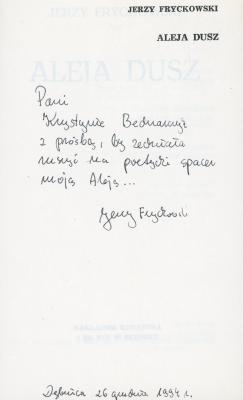 JERZY FRYCKOWSKI
ALEJA DUSZ
JERZY FRYCKOWSKI
ALEJA DUSZ
Pani
Krystynie Bednarczyk
z prośbą, by zechciała
ruszyć na poetycki spacer
moją Aleją...
Jerzy Fryckowski
Dębnica 26 grudnia 1994 r.